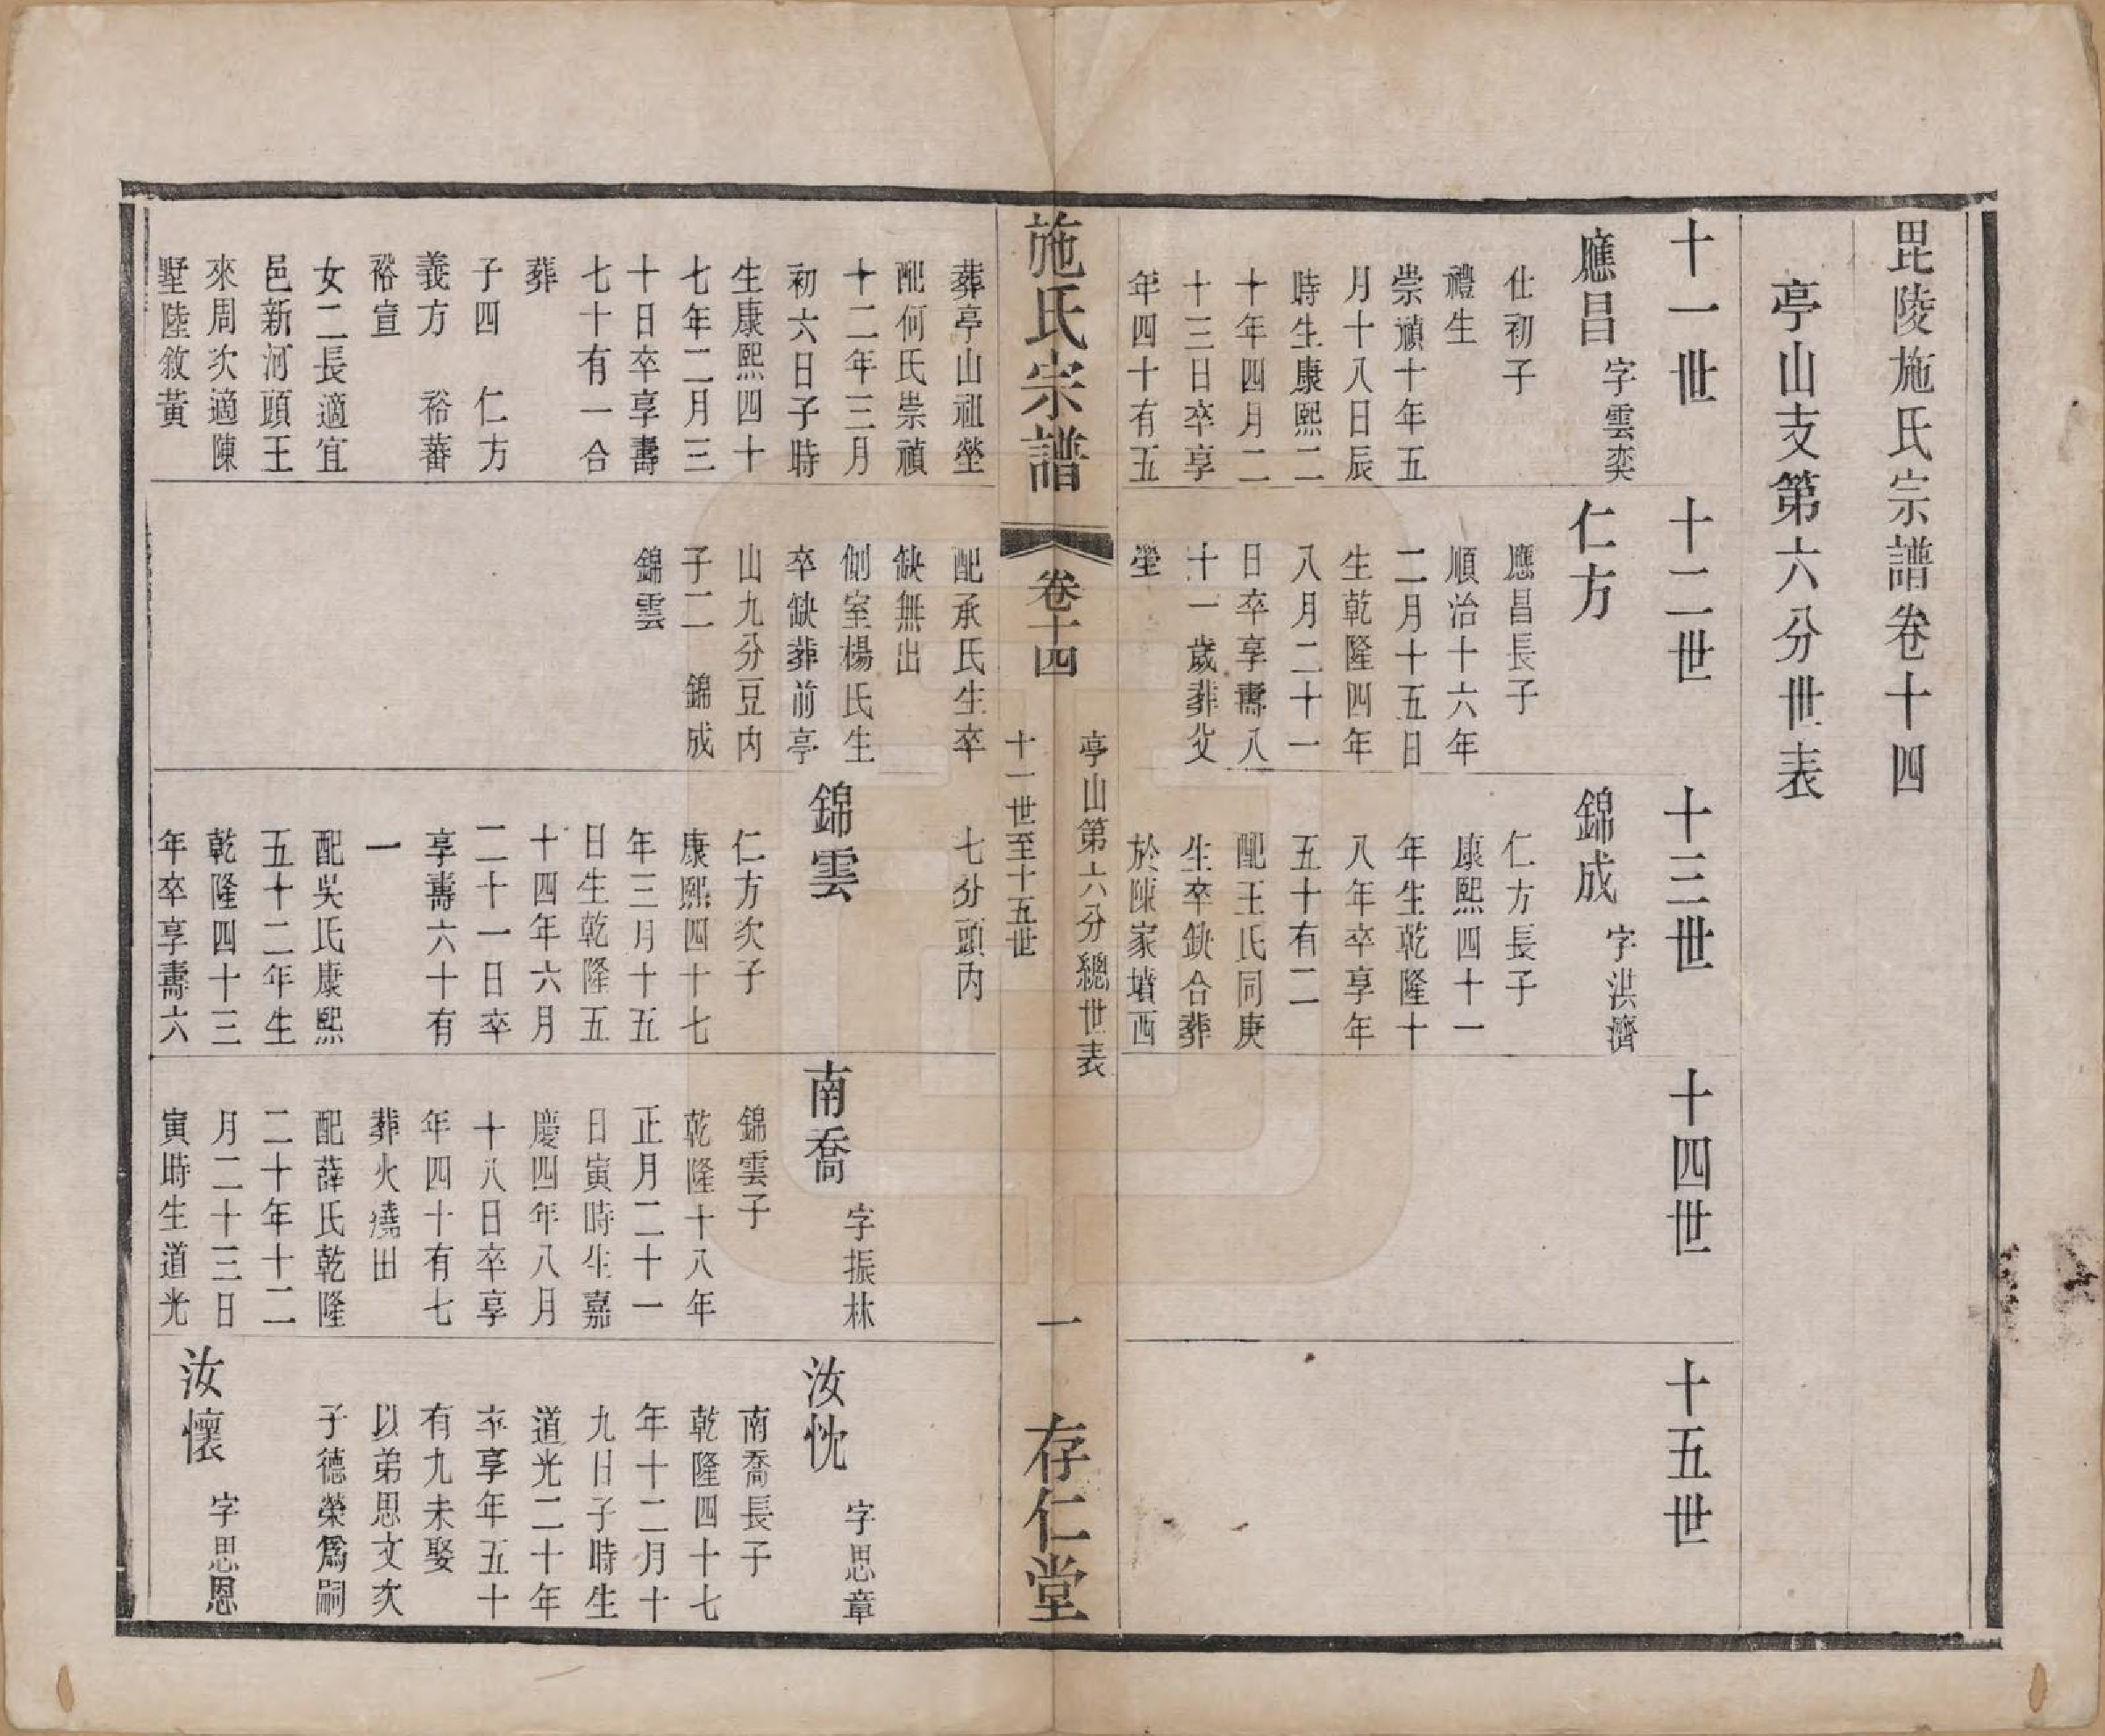 毘陵施氏宗譜卷十四
亭山支第六分世表
十一世
十二世
十三世
十四世
十五世
應昌 字雲奕
仕初子
禮生
崇禎十年五
月十八日辰
時生康熙二
十年四月二
十三日卒享
年四十有五
仁方
應昌長子
順治十六年
二月十五日
生乾隆四年
八月二十一
日卒享壽八
十一歲葬父
塋
錦成 字洪濟
仁方長子
康熙四十一
年生乾隆十
八年卒享年
五十有二
配王氏同庚
生卒缺合葬
於陳家墳西
施氏宗譜
卷十四
亭山第六分總世表
十一世至十五世
一
存仁堂
葬亭山祖塋
配何氏崇禎
十二年三月
初六日子時
生康熙四十
七年二月三
十日卒享壽
七十有一合
葬
子四 仁方
義方 裕蕃
裕宣
女二長適宜
邑新河頭王
來周次適陳
墅陸敘黃
配承氏生卒
缺無出
側室楊氏生
卒缺葬前亭
山九分豆內
子二 錦成
錦雲
七分頭內
錦雲
仁方次子
康熙四十七
年三月十五
日生乾隆五
十四年六月
二十一日卒
享壽六十有
一
配吳氏康熙
五十二年生
乾隆四十三
年卒享壽六
南喬 字振林
錦雲子
乾隆十八年
正月二十一
日寅時生嘉
慶四年八月
十八日卒享
年四十有七
葬火燒田
配薛氏乾隆
二十年十二
月二十三日
寅時生道光
汝忱 字思章
南喬長子
乾隆四十七
年十二月十
九日子時生
道光二十年
卒享年五十
有九未娶
以弟思文次
子德榮爲嗣
汝懷 字思恩